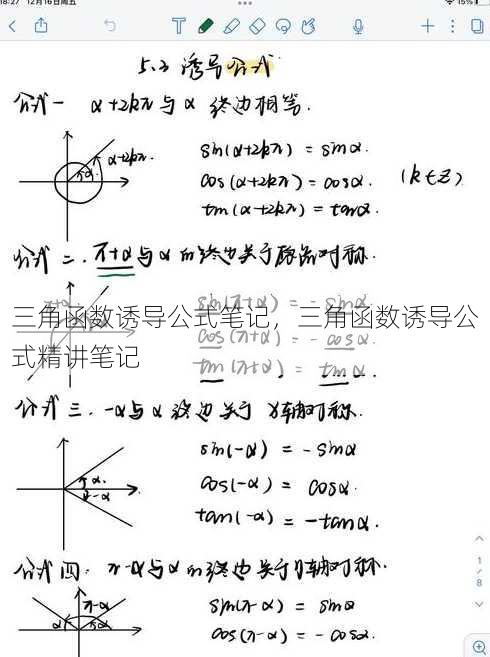 18:27 12月16日周五
15%
5.3 诱导公式
公式一 α+2kπ与α 终边相等.
α+2kπ.
α
sin(α+2kπ) = sinα.
cos(α+2kπ) = cosα. (k∈Z)
tan(α+2kπ) = tanα.
公式二. π+α与α的终边关于原点对称.
π+α
sin(π+α) = - sinα.
三角函数诱导公式笔记，三角函数诱导公
cos(π+α) = - cosα.
式精讲笔记
tan(π+α) = tanα.
公式三. -α与α终边关于x轴对称.
sin(-α) = - sinα
α.
cos(-α) = cosα.
-α
tan(-α) = -tanα.
公式四. π-α与α的终边关于y轴对称.
π-α
sin(π-α) = sinα
α
α
cos(π-α) = - cosα.
1/8